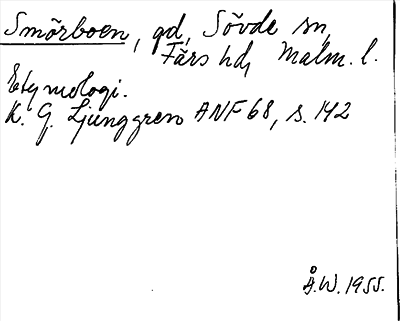 Smörboen, gd, Sövde sn,
Färs hd, Malm. l.
Etymologi.
K. G. Ljunggren ANF 68, s. 142
Å.W. 1955.